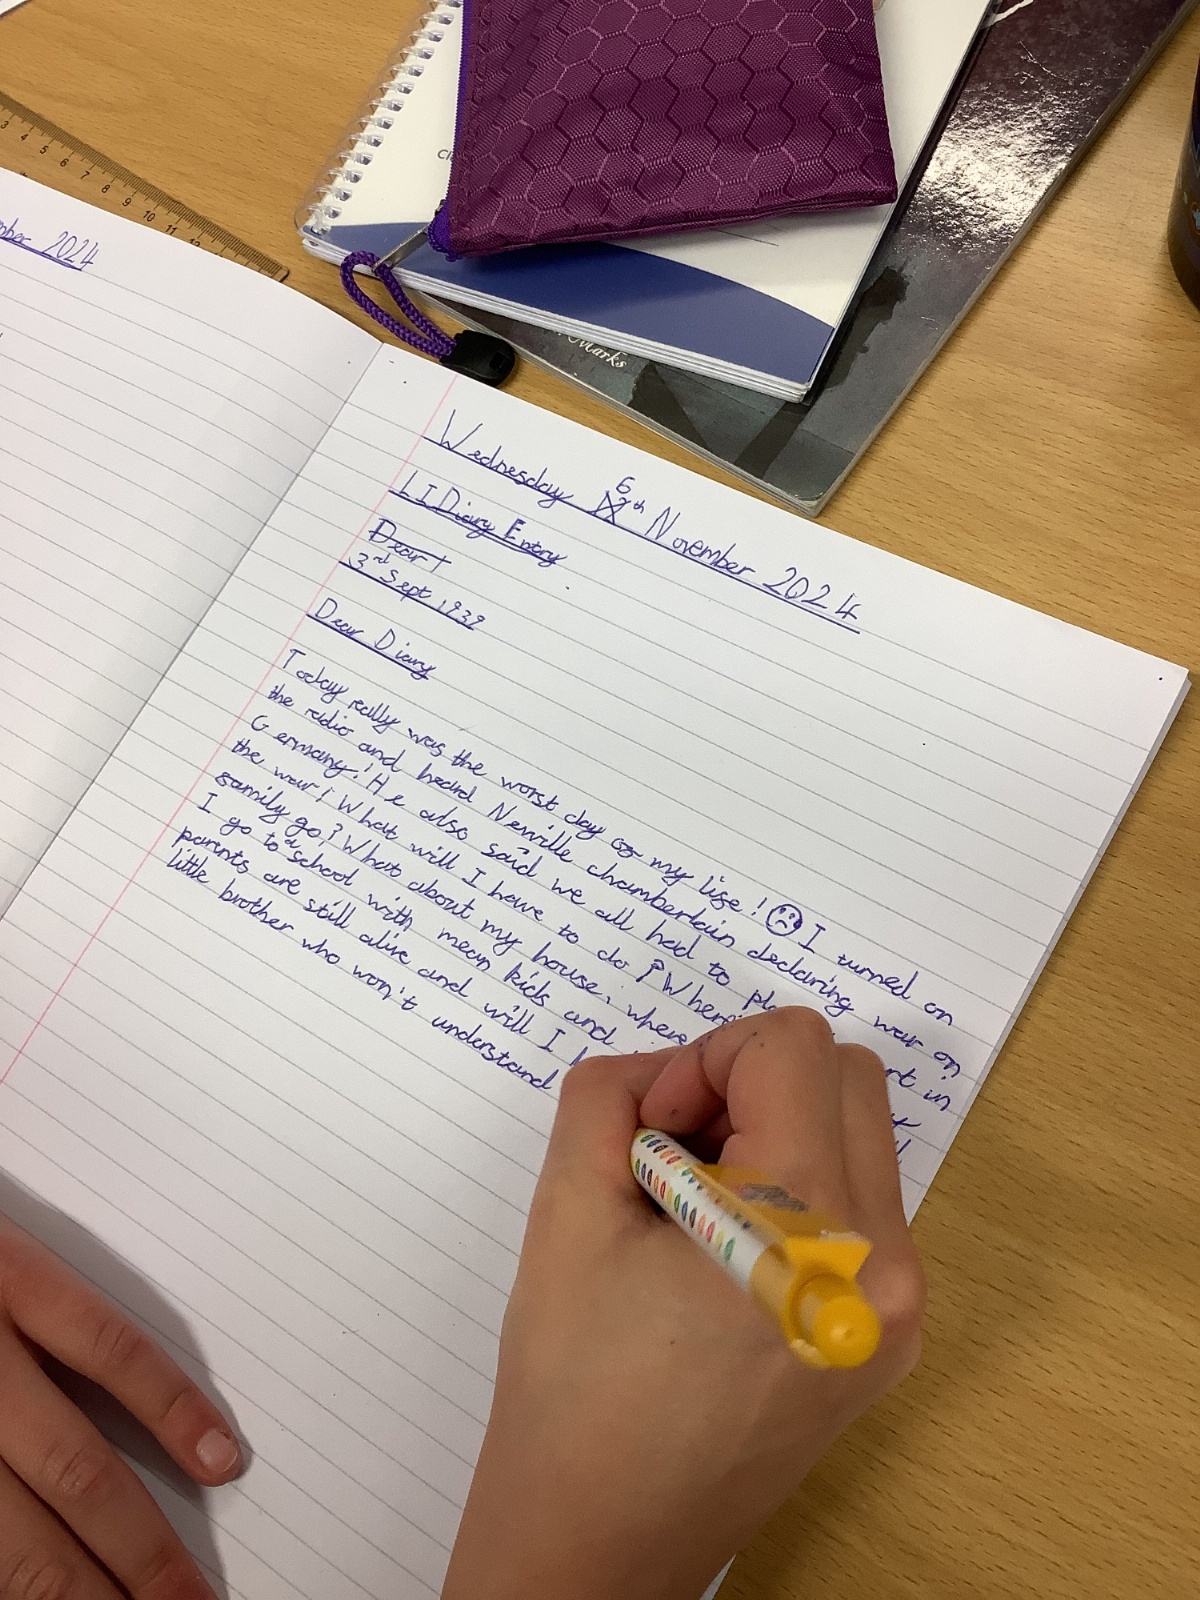 3 4 5 6 7 8 9 10 11 12
2024
Marks
Wednesday 6th November 2024
LI Diary Entry
Dear
3rd Sept 1939
Dear Diary
Today really was the worst day of my life! ☹ I turned on
the radio and heard Neville chamberlain declaring war on
Germany! He also said we all had to in
the war! What will I have to do?
family go? What about my house, where
I go to a school with mean kids and
parents are still alive and will I
little brother who won't understand